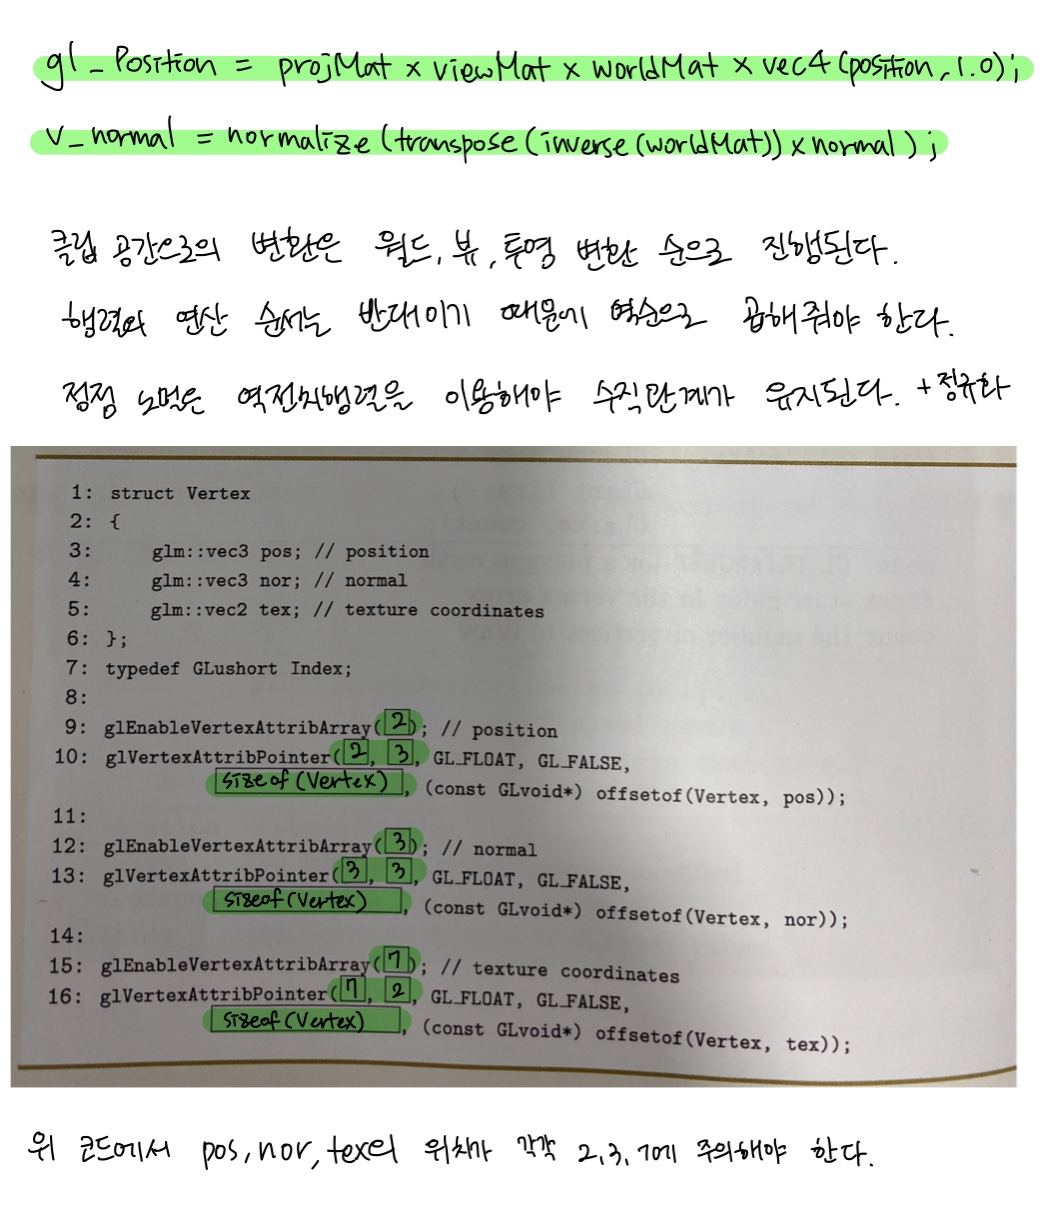 gl_Position = projMat × viewMat × worldMat × vec4(position, 1.0);
v_normal = normalize(transpose(inverse(worldMat)) × normal);
클립 공간으로의 변환은 월드, 뷰, 투영 변환 순으로 진행된다.
행렬의 연산 순서는 반대이기 때문에 역순으로 곱해줘야 한다.
정점 노멀은 역전치행렬을 이용해야 수직관계가 유지된다. +정규화
1: struct Vertex
2: {
3: glm::vec3 pos; // position
4: glm::vec3 nor; // normal
5: glm::vec2 tex; // texture coordinates
6: };
7: typedef GLushort Index;
8:
9: glEnableVertexAttribArray(2); // position
10: glVertexAttribPointer(2, 3, GL_FLOAT, GL_FALSE,
sizeof(Vertex), (const GLvoid*) offsetof(Vertex, pos));
11:
12: glEnableVertexAttribArray(3); // normal
13: glVertexAttribPointer(3, 3, GL_FLOAT, GL_FALSE,
sizeof(Vertex), (const GLvoid*) offsetof(Vertex, nor));
14:
15: glEnableVertexAttribArray(7); // texture coordinates
16: glVertexAttribPointer(7, 2, GL_FLOAT, GL_FALSE,
sizeof(Vertex), (const GLvoid*) offsetof(Vertex, tex));
위 코드에서 pos, nor, tex의 위치가 각각 2, 3, 7에 주의해야 한다.